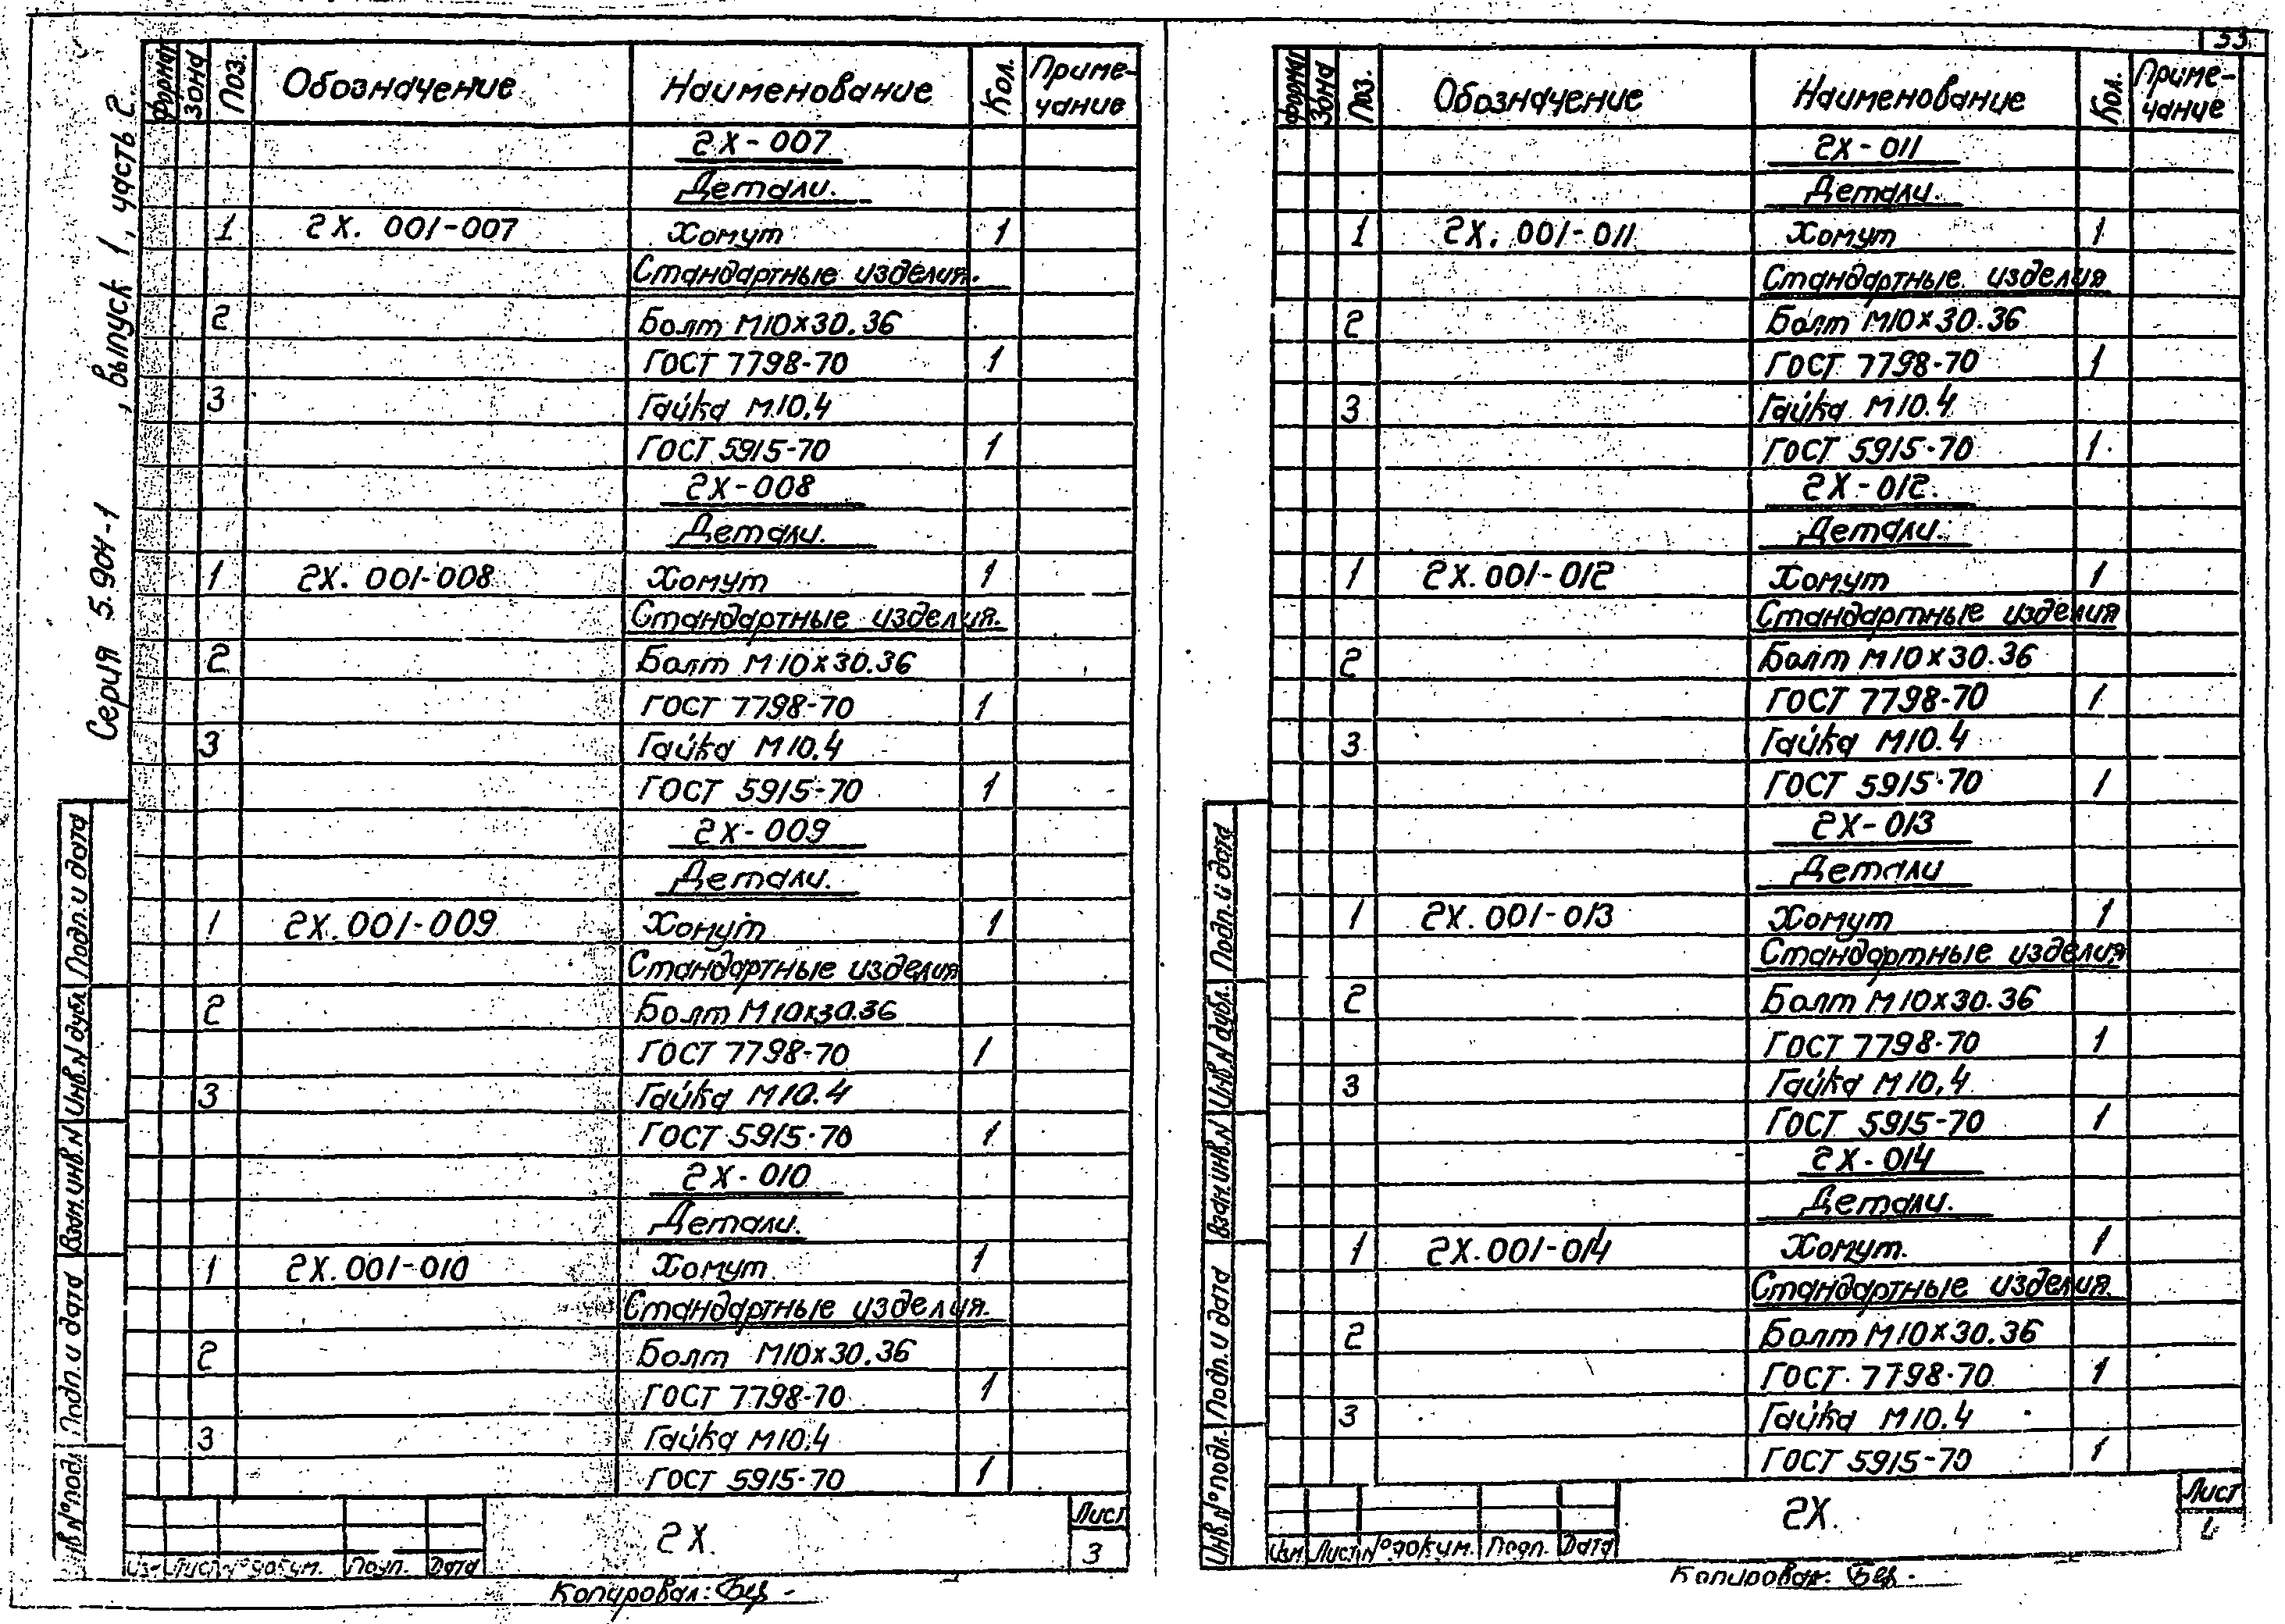 53
Серия 5.904-1 , выпуск 1, часть 2
Формат Зона Поз. Обозначение Наименование Кол. Приме-
чание
2Х-007
Детали.
1 2Х. 001-007 Хомут 1
Стандартные изделия.
2 Болт М10х30.36
ГОСТ 7798-70 1
3 Гайка М.10.4
ГОСТ 5915-70 1
2Х-008
Детали.
1 2Х. 001-008 Хомут 1
Стандартные изделия.
2 Болт М10х30.36
ГОСТ 7798-70 1
3 Гайка М10.4
ГОСТ 5915-70 1
2Х-009
Детали.
1 2Х.001-009 Хомут 1
Стандартные изделия
2 Болт М10х30.36
ГОСТ 7798-70 1
3 Гайка М10.4
ГОСТ 5915-70 1
2Х-010
Детали.
1 2Х.001-010 Хомут 1
Стандартные изделия.
2 Болт М10х30.36
ГОСТ 7798-70 1
3 Гайка М10.4
ГОСТ 5915-70 1
Подп. и дата
Инв.N дубл.
Взам.инв.N
Подп. и дата
Инв.N°подл.
Изм Лист N°докум. Подп. Дата
2Х.
Лист
3
Копировал:
Формат Зона Поз. Обозначение Наименование Кол. Приме-
чание
2Х-011
Детали.
1 2Х. 001-011 Хомут 1
Стандартные изделия
2 Болт М10х30.36
ГОСТ 7798-70 1
3 Гайка М10.4
ГОСТ 5915-70 1
2Х-012.
Детали.
1 2Х.001-012 Хомут 1
Стандартные изделия
2 Болт М10х30.36
ГОСТ 7798-70 1
3 Гайка М10.4
ГОСТ 5915-70 1
2Х-013
Детали
1 2Х.001-013 Хомут 1
Стандартные изделия
2 Болт М10х30.36
ГОСТ 7798-70 1
3 Гайка М10.4
ГОСТ 5915-70 1
2Х-014
Детали.
1 2Х.001-014 Хомут. 1
Стандартные изделия.
2 Болт М10х30.36
ГОСТ 7798-70 1
3 Гайка М10.4
ГОСТ 5915-70 1
Подп. и дата
Инв.N дубл.
Взам.инв.N
Подп. и дата
Инв.N°подл.
Изм Лист N°докум. Подп. Дата
2Х.
Лист
Копировал: